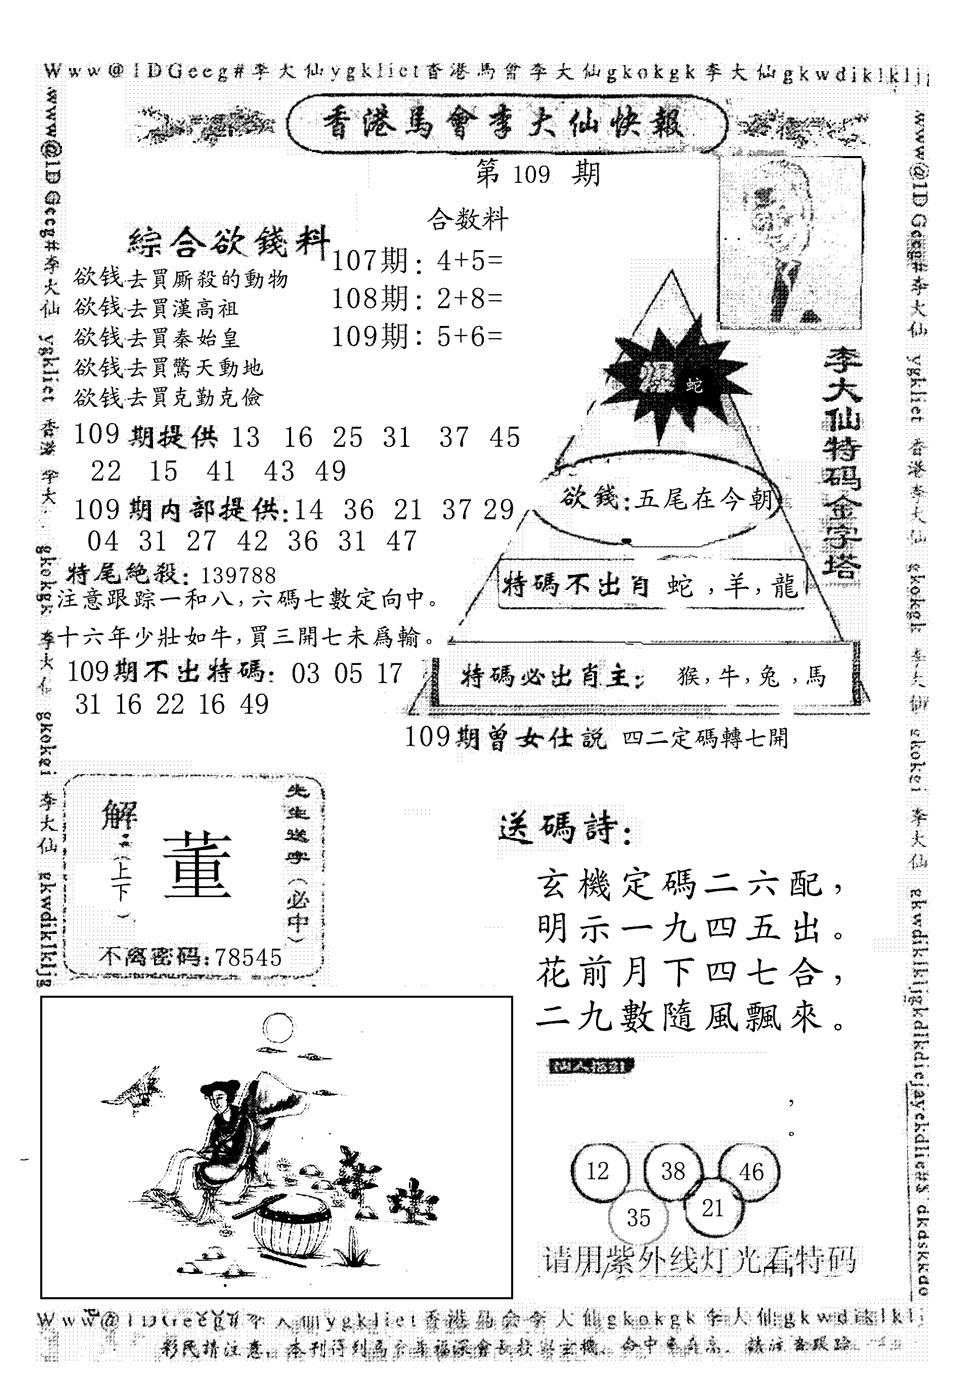 Www@1DGeeg#李大仙ygkliet香港馬會李大仙gkokgk李大仙gkwdiklkljg
香港馬會李大仙快報
第 109 期
合数料
綜合欲錢料
107期: 4+5=
108期: 2+8=
109期: 5+6=
欲钱去買厮殺的動物
欲钱去買漢高祖
欲钱去買秦始皇
欲钱去買驚天動地
欲钱去買克勤克儉
109 期提供 13 16 25 31 37 45
22 15 41 43 49
109 期内部提供:14 36 21 37 29
04 31 27 42 36 31 47
特尾絶殺: 139788
注意跟踪一和八,六碼七數定向中。
十六年少壯如牛,買三開七未爲輸。
109期不出特碼: 03 05 17
31 16 22 16 49
李大仙特码金字塔
爆 蛇
欲錢:五尾在今朝
特碼不出肖 蛇,羊,龍
特碼必出肖主: 猴,牛,兔,馬
109期曾女仕説 四二定碼轉七開
先生送字(必中)
解:(上下)
董
不离密码:78545
送碼詩:
玄機定碼二六配,
明示一九四五出。
花前月下四七合,
二九數隨風飄來。
,
。
12 38 46
35 21
请用紫外线灯光看特码
www@1DGeeg#李大仙 ygkliet 香港李大仙 gkokgk 李大仙 gkokei 李大仙 gkwdiklkljg
www@1DGeeg#李大仙 ygkliet 香港李大仙 gkokgk 李大仙 gkokei 李大仙 gkwdiklkljgkdlkdiejayekdlie#$ dkdskkdo
Www@1DGeeg#李大仙ygkliet香港馬会李大仙gkokgk李大仙gkwdiklklj
彩民請注意。本刊得到馬会